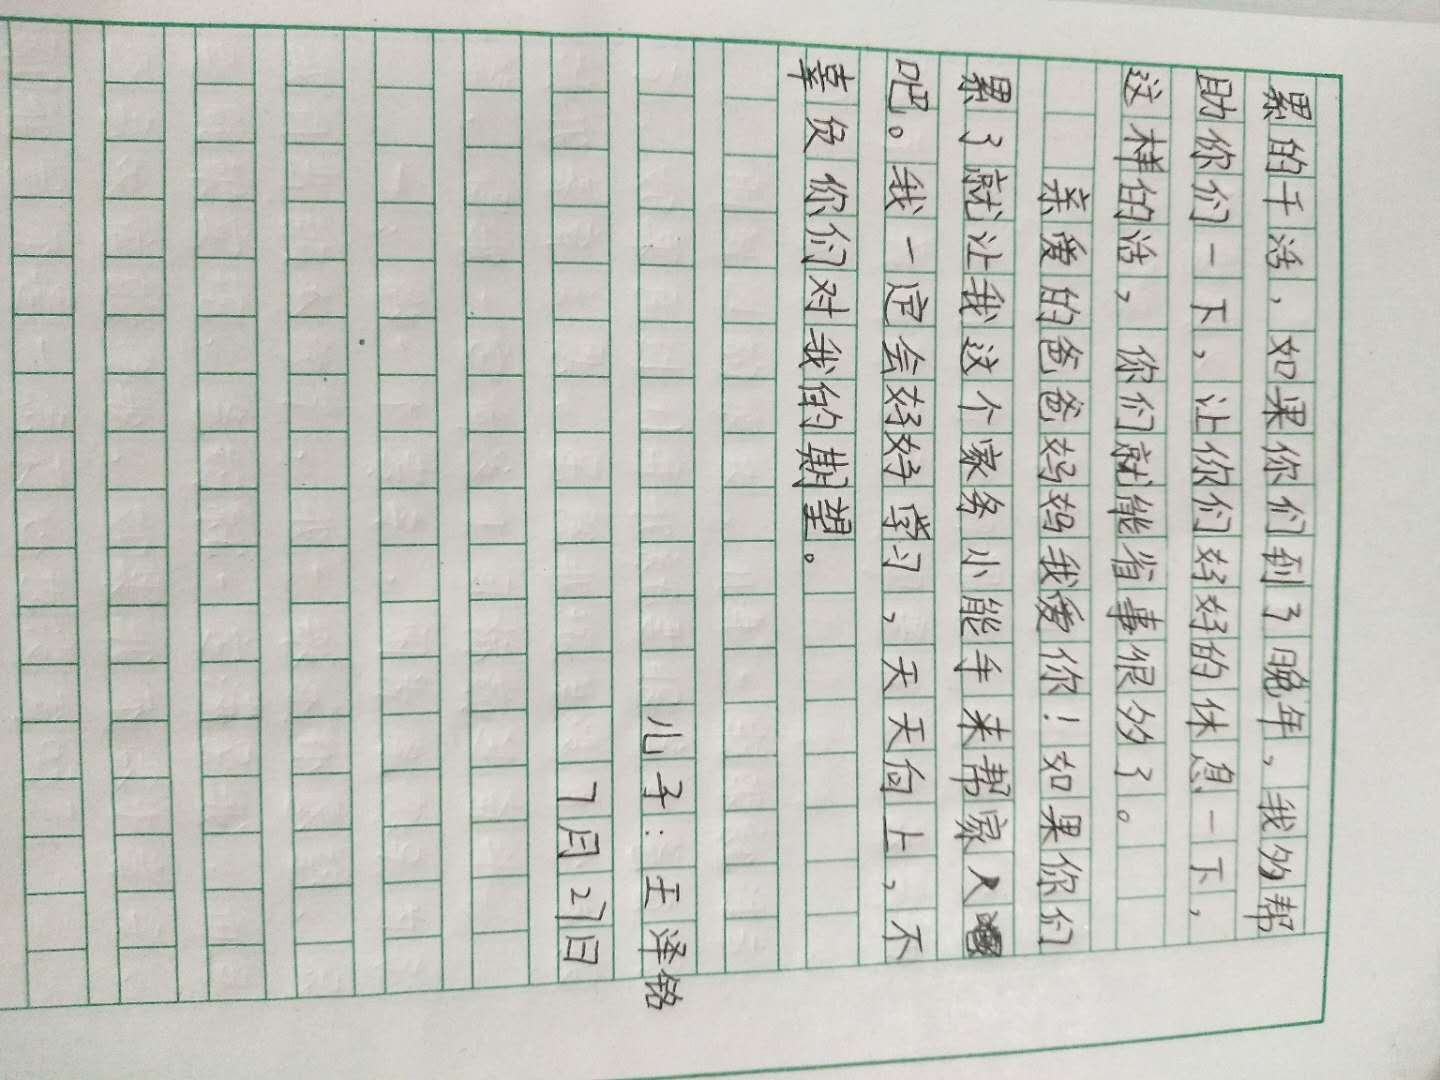 累的千活，如果你们到了晚年，我多帮
助你们一下，让你们好好的休息一下，
这样的话，你们就能省事很多了。
亲爱的爸爸妈妈我爱你！如果你们
累了就让我这个家务小能手来帮家人
吧。我一定会好好学习，天天向上，不
辜负你们对我的期望。
儿子：王泽铭
7月27日